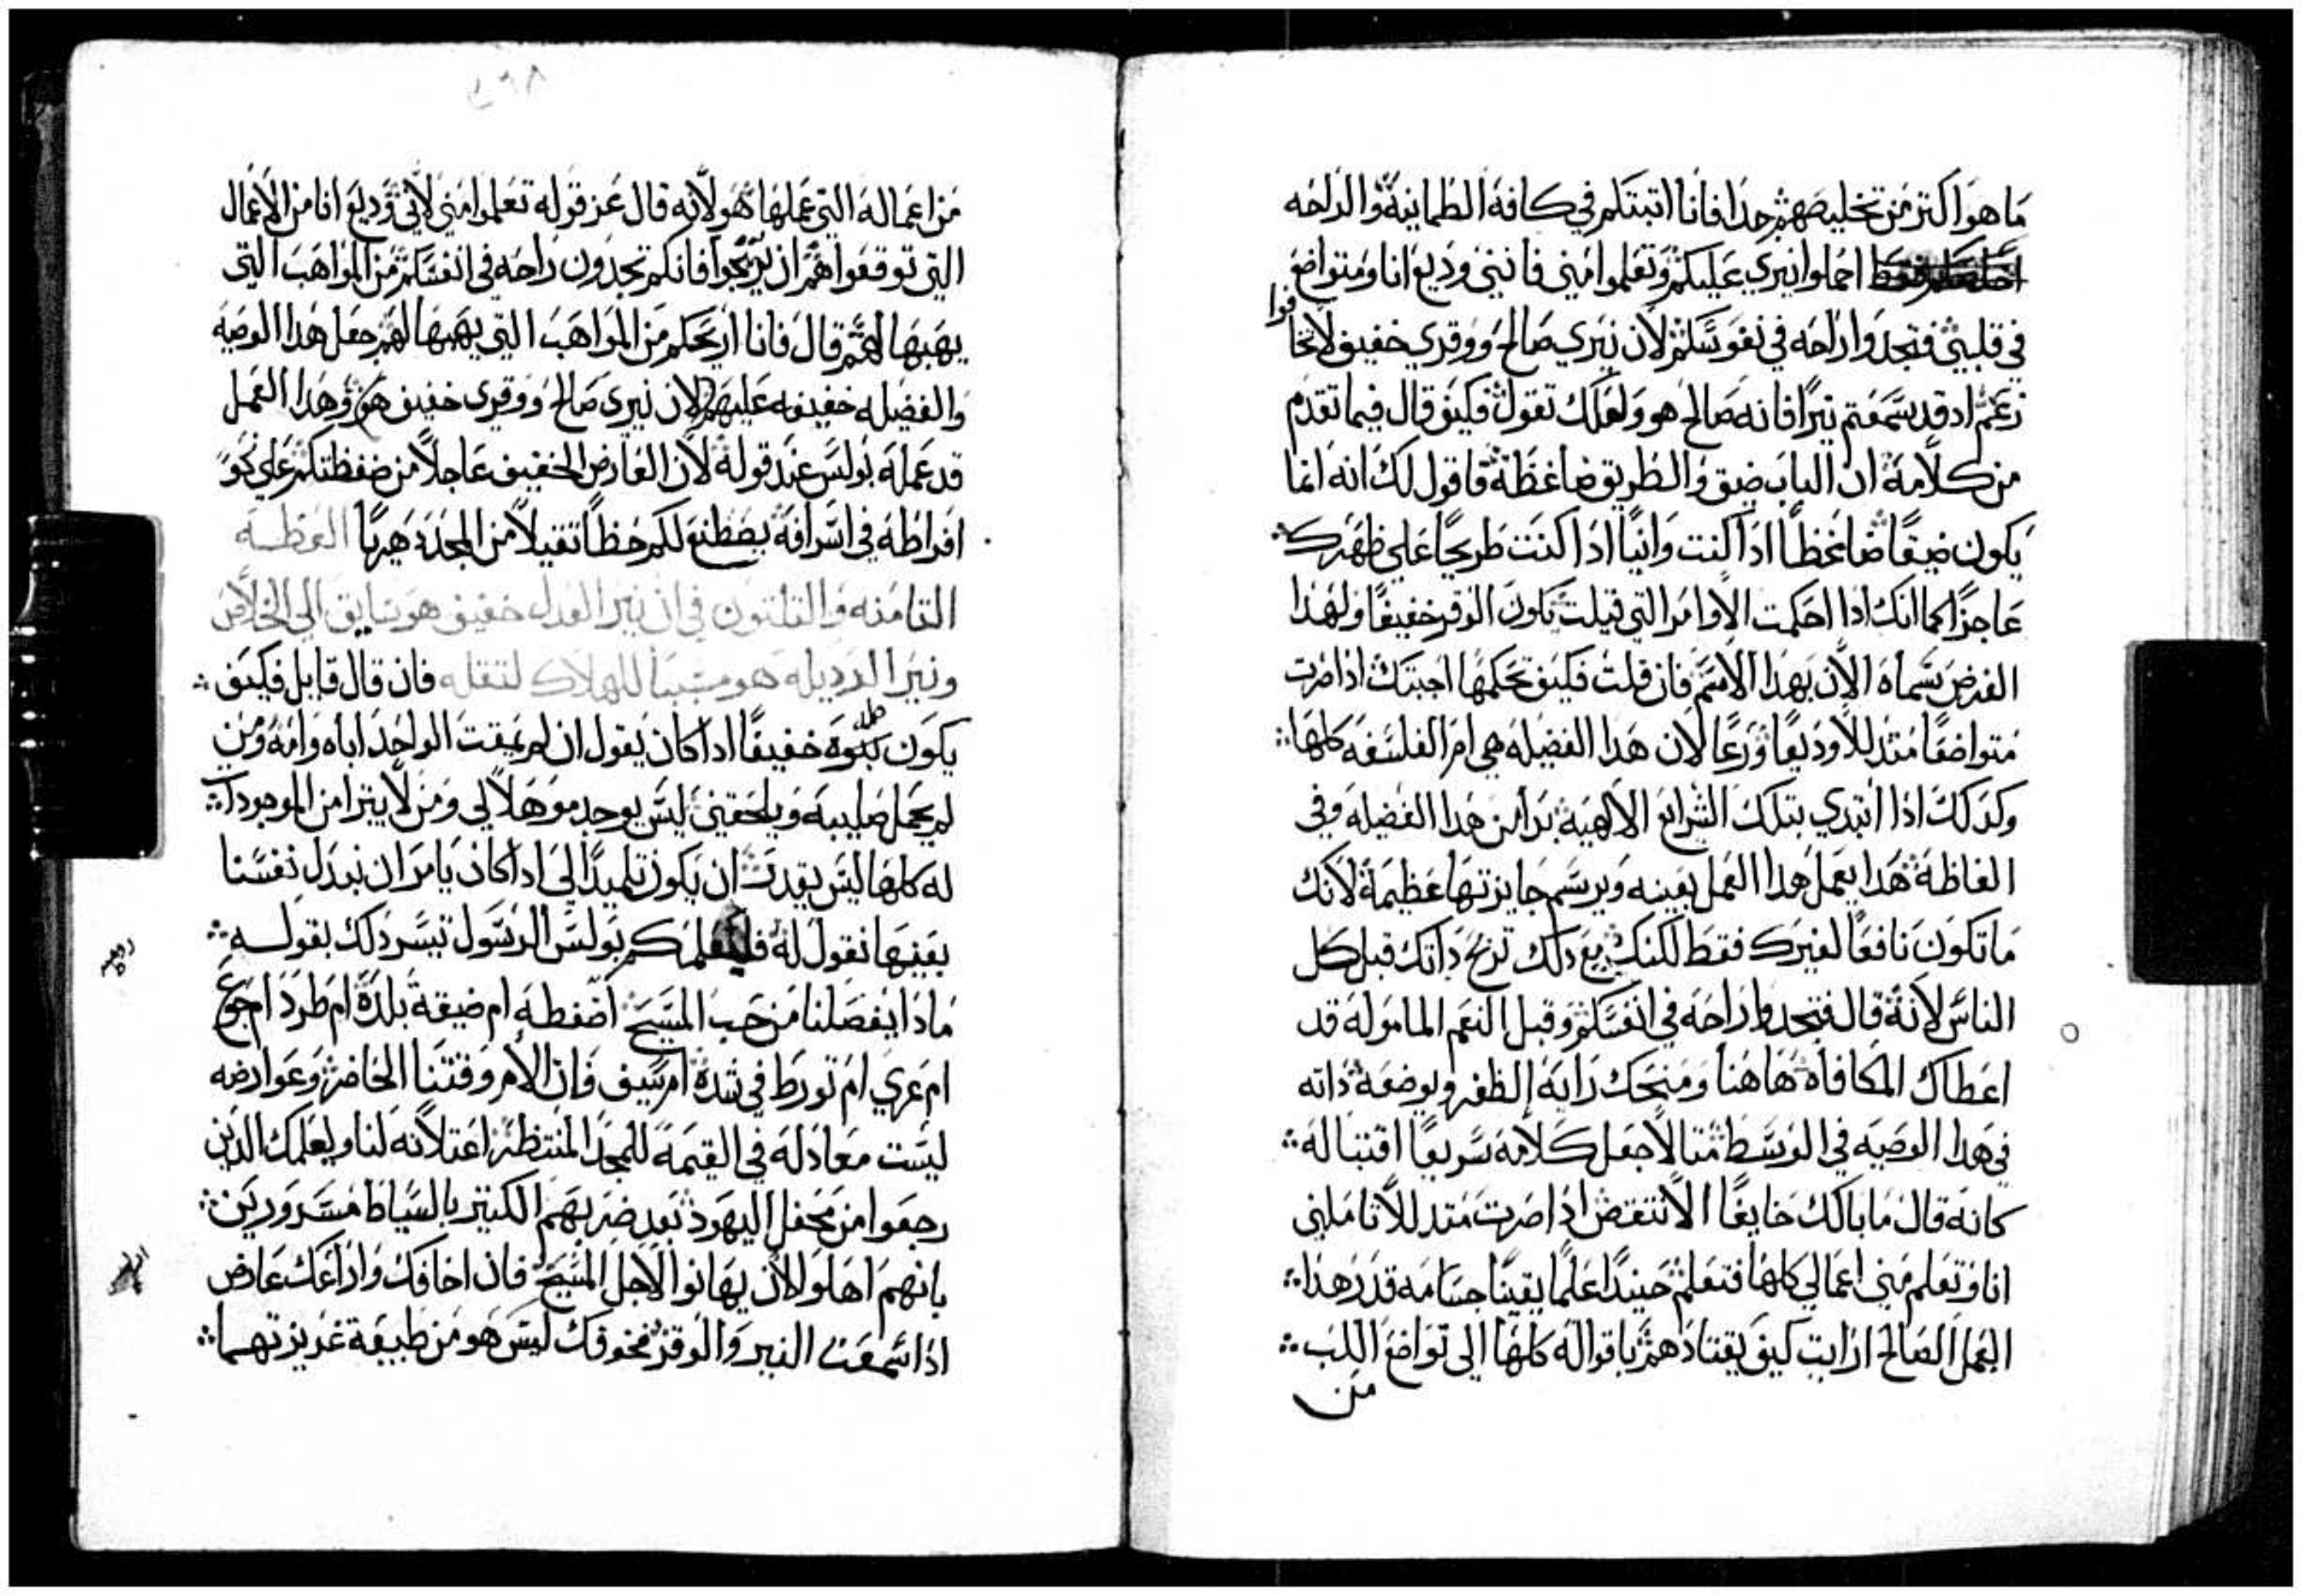 ما هو اكتر من تخليصهم جدا فانا اتبتكم في كافة الطمانينة والراحه
احملوا نيري عليكم وتعلموا مني فانني وديع انا ومتواضع
في قلبي فتجدوا راحه في نفوسكم لان نيري صالح ووقري خفيف لا تخافوا
زعم اد قد سمعتم نيرا فانه صالح هو ولعلك تقول فكيف قال فيما تقدم
من كلامه ان الباب ضيق والطريق ضاغظة فاقول لك انه انما
يكون ضيقا ضاغظا ادا كنت وانيا ادا كنت طريحا علي ظهرك
عاجزا كما انك ادا احكمت الاوامر التي قيلت يكون الوقر خفيفا ولهدا
الغرض سماه الان بهدا الاسم فان قلت فكيف تحكمها اجبتك اذا صرت
متواضعا متدللا وديعا ورعا لان هدا الفضيله هي ام الفلسفه كلها
وكدلك ادا ابتدي بتلك الشرايع الالهية بدا من هدا الفضيله وفي
الفاظة هدا يعمل هدا العمل بعينه ويرسم جايزتها عظيمة لانك
ما تكون نافعا لغيرك فقط لكنك مع دلك تريح داتك قبل كل
الناس لانه قال فتجدوا راحه في انفسكم وقبل النعم المامولة قد
اعطاك المكافاة هاهنا ومنحك راية الظفر وبوضعة ذاته
في هدا الوصيه في الوسط متالا جعل كلامه سريعا اقتباله
كانه قال ما بالك خايفا الا تنتقض ادا صرت متدللا تاملني
انا وتعلم مني اعمالي كلها فتعلم حينيدا علما يقينا جسامه قدر هدا
العمل الصالح ارايت كيف يقتادهم باقواله كلها الى تواضع اللب
من
من اعماله التي عملها هو لانه قال عز قوله تعلموا مني لاني وديع انا من الاعمال
التي توقعوا هم ان يربحوا فانكم تجدون راحه في انفسكم من المواهب التي
يهبها لهم قال فانا اريحكم من المواهب التي يهبها لهم جعل هدا الوصيه
والفضيله خفيفه عليهم لان نيري صالح ووقري خفيف هو وهدا العمل
قد عمله بولس عند قوله لان العارض الخفيف عاجلا من ضغظتكم علي نحو
افراطه في اسرافه يصطنع لكم حظا تقيلا من المجد دهريا العظـة
التامنه والتلتون في ان نير العدل خفيف هو سايق الي الخلاص
ونير الرديله هو مسببا للهلاك لتقله فان قال قايل فكيف
يكون خفيفا ادا كان يقول ان لم يمقت الواحد اباه وامه ومن
لم يحمل صليبه ويلحقني ليس يوجد موهلا لي ومن لا يتبرا من الموجودات
له كلها ليس يقدر ان يكون تلميدا لي ادا كان يامر ان نبدل نفسنا
بعينها نقول له فليعلمكم بولس الرسول تيسر دلك بقوله
مادا يفصلنا من حب المسيح اضغطه ام ضيقة بلدة ام طرد ام جوع
ام عري ام تورط في شدة ام سيف فان الام وقتنا الحاضر وعوارضه
ليست معادله في القيمة للمجد المنتظر اعتلانه لنا وليعلمك الدين
رجعوا من محفل اليهود بعد ضربهم الكتير بالسياط مسرورين
بانهم اهلوا لان يهانوا لاجل المسيح فان اخافك واراعك عارض
اذا سمعت النير والوقر فخوفك ليس هو من طبيعة غريزتهما